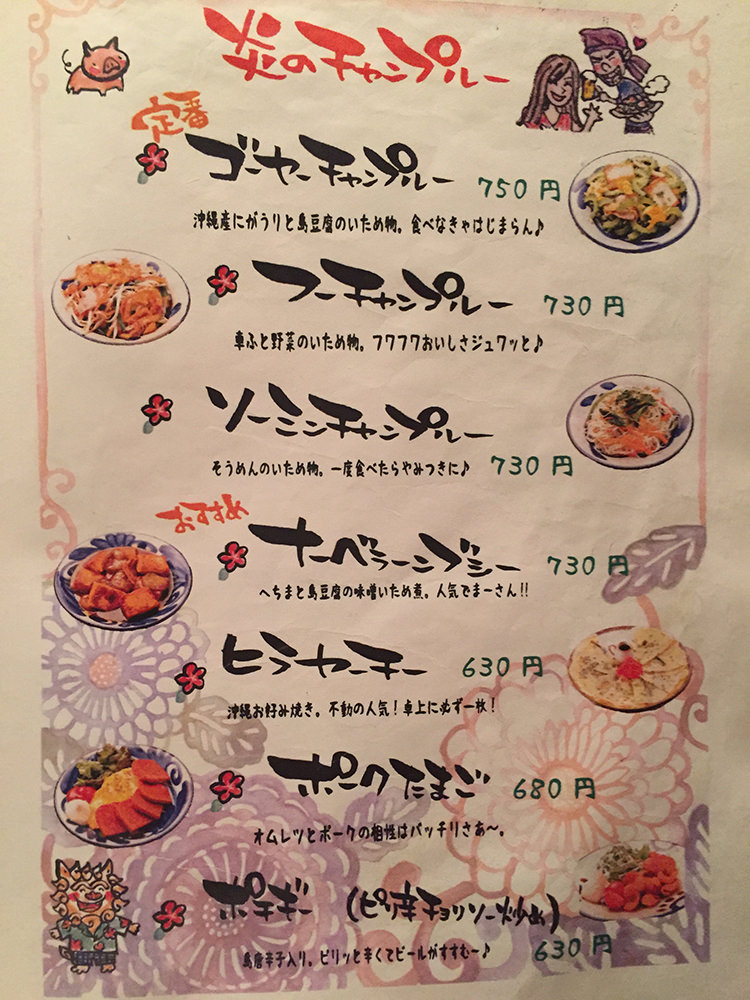 炎のチャンプルー
定番
ゴーヤーチャンプルー 750円
沖縄産にがうりと島豆腐のいため物。食べなきゃはじまらん♪
フーチャンプルー 730円
車ふと野菜のいため物。フワフワおいしさジュワッと♪
ソーミンチャンプルー
そうめんのいため物。一度食べたらやみつきに♪ 730円
おすすめ
ナーベラーンブシー 730円
へちまと島豆腐の味噌いため煮。人気でまーさん!!
ヒラヤーチー 630円
沖縄お好み焼き。不動の人気!卓上に必ず一枚!
ポークたまご 680円
オムレツとポークの相性はバッチリさあ〜。
ポギギー (ピリ辛チョリソー炒め)
島唐辛子入り。ピリッと辛くてビールがすすむ〜♪ 630円